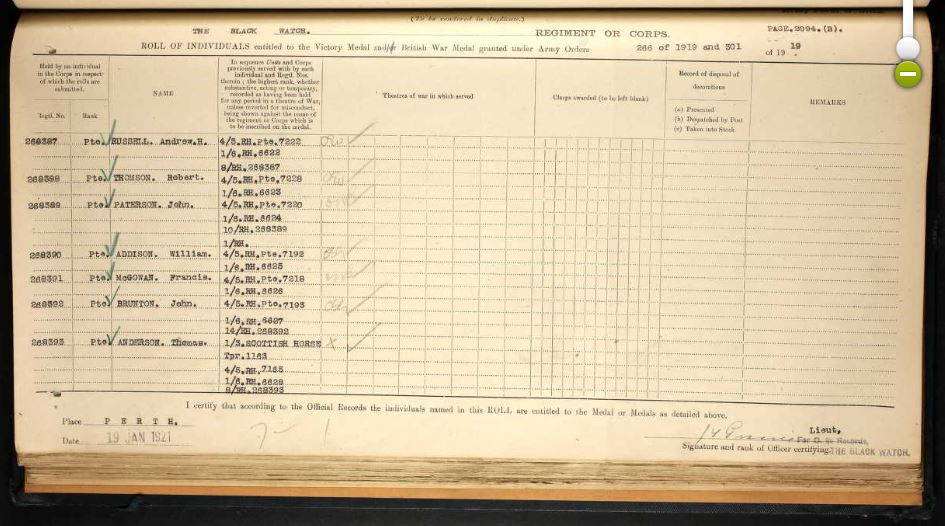 (To be rendered in duplicate.)
THE BLACK WATCH. REGIMENT OR CORPS. PAGE.2994.(B).
ROLL OF INDIVIDUALS entitled to the Victory Medal and/or British War Medal granted under Army Orders 266 of 1919 and 301 of 19 19
Held by an individual in the Corps in respect of which the rolls are submitted.
Regtl. No. Rank
NAME
In sequence Units and Corps previously served with by each individual and Regtl. Nos. therein; the highest rank, whether substantive, acting or temporary, recorded as having been held for any period in a theatre of War, unless reverted for misconduct, being shown against the name of the regiment or Corps which is to be inscribed on the medal.
Theatres of war in which served
Clasps awarded (to be left blank)
Record of disposal of decorations
(a) Presented
(b) Despatched by Post
(c) Taken into Stock
REMARKS
268387 Pte. RUSSELL. Andrew.H. 4/5.RH.Pte.7222
1/6.RH.6622
8/RH.268387
268388 Pte. THOMSON. Robert. 4/5.RH.Pte.7228
1/6.RH.6623
268389 Pte. PATERSON. John. 4/5.RH.Pte.7220
1/6.RH.6624
10/RH.268389
1/RH.
268390 Pte. ADDISON. William. 4/5.RH.Pte.7192
1/6.RH.6625
268391 Pte. McGOWAN. Francis. 4/5.RH.Pte.7218
1/6.RH.6626
268392 Pte. BRUNTON. John. 4/5.RH.Pte.7193
1/6.RH.6627
14/RH.268392
268393 Pte. ANDERSON. Thomas. 1/3.SCOTTISH HORSE X
Tpr.1163
4/5.RH.7165
1/6.RH.6628
8/RH.268393
I certify that according to the Official Records the individuals named in this ROLL are entitled to the Medal or Medals as detailed above.
Place PERTH.
Date 19 JAN 1921
Lieut,
For O. i/c Records,
Signature and rank of Officer certifying. THE BLACK WATCH.